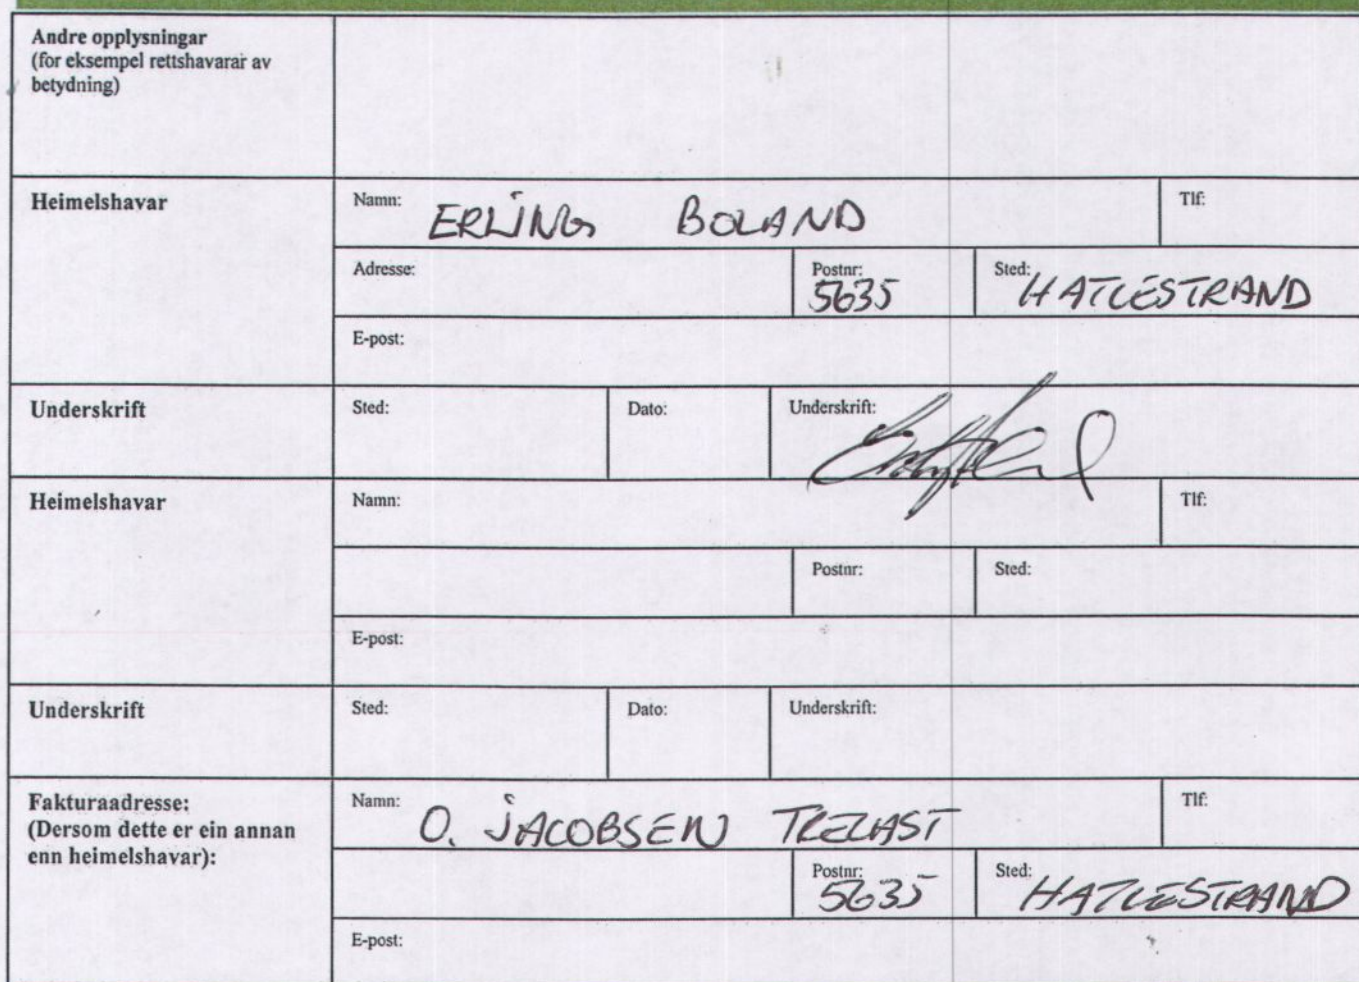 Andre opplysningar
(for eksempel rettshavarar av
betydning)
Heimelshavar
Namn: ERLING BOLAND
Tlf:
Adresse:
Postnr: 5635
Sted: HATLESTRAND
E-post:
Underskrift
Sted:
Dato:
Underskrift:
Heimelshavar
Namn:
Tlf:
Postnr:
Sted:
E-post:
Underskrift
Sted:
Dato:
Underskrift:
Fakturaadresse:
(Dersom dette er ein annan
enn heimelshavar):
Namn: O. JACOBSEN TRELAST
Tlf:
Postnr: 5635
Sted: HATLESTRAND
E-post: